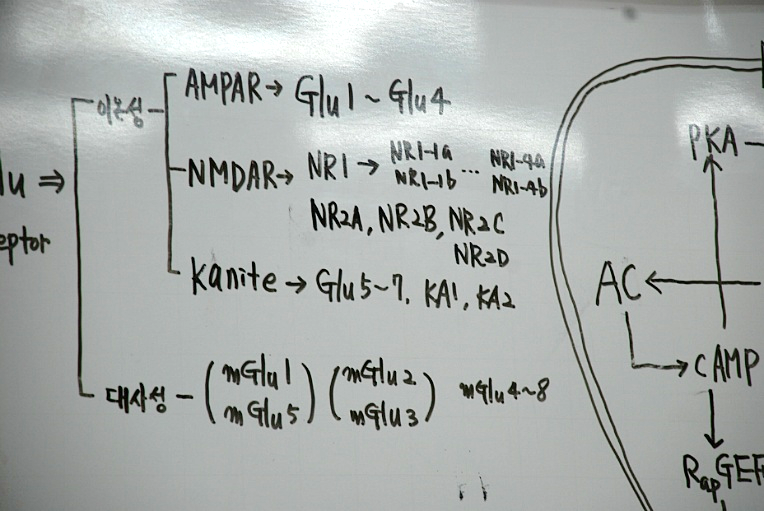 lu ⇒
eptor
이온성
AMPAR → Glu1 ~ Glu4
NMDAR → NR1 → NR1-1a ... NR1-4a
NR1-1b NR1-4b
NR2A, NR2B, NR2C
NR2D
kanite → Glu5~7, KA1, KA2
대사성 - (mGlu1 mGlu5) (mGlu2 mGlu3) mGlu4~8
PKA
AC
cAMP
RapGEF